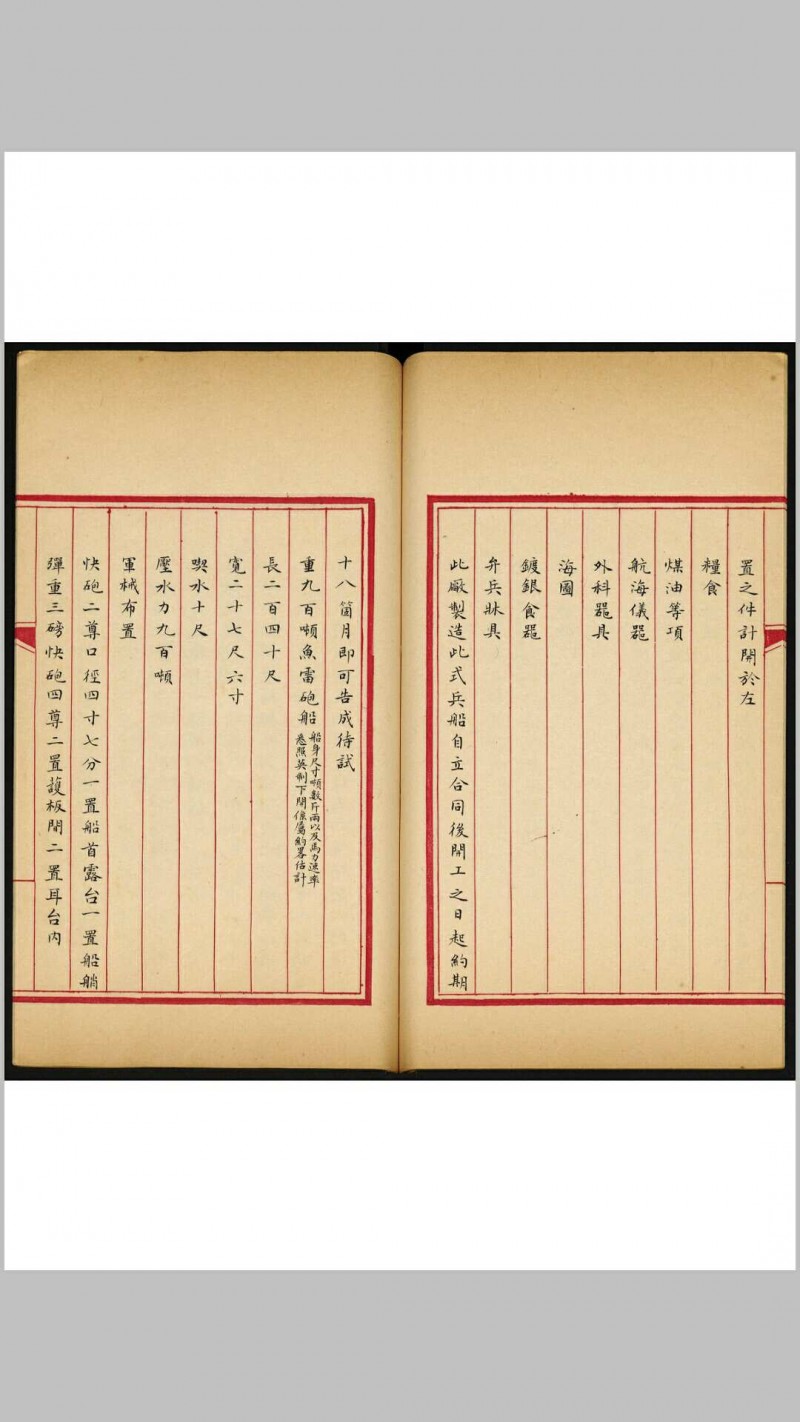 置之件計開於左
糧食
煤油等項
航海儀器
外科器具
海圖
鍍銀食器
弁兵牀具
此廠製造此式兵船自立合同後開工之日起約期
十八箇月即可告成待試
重九百噸魚雷砲船船身尺寸噸數斤兩以及馬力速率
悉照英制下開係屬約畧估計
長二百四十尺
寬二十七尺六寸
喫水十尺
壓水力九百噸
軍械布置
快砲二尊口徑四寸七分一置船首露台一置船艄
彈重三磅快砲四尊二置護板間二置耳台內